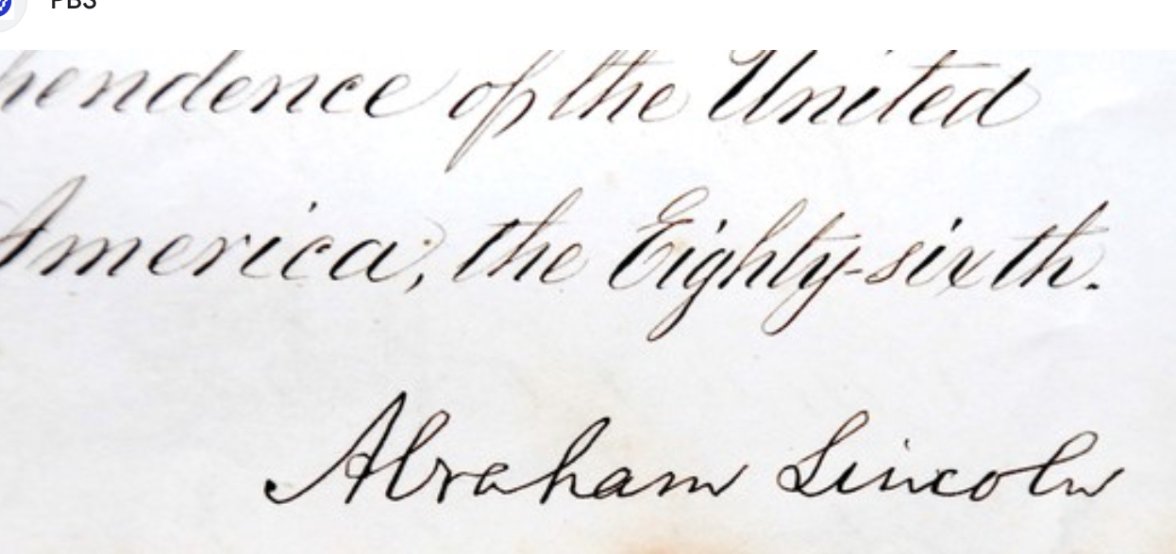 PBS
pendence of the United
America, the Eighty-sixth.
Abraham Lincoln